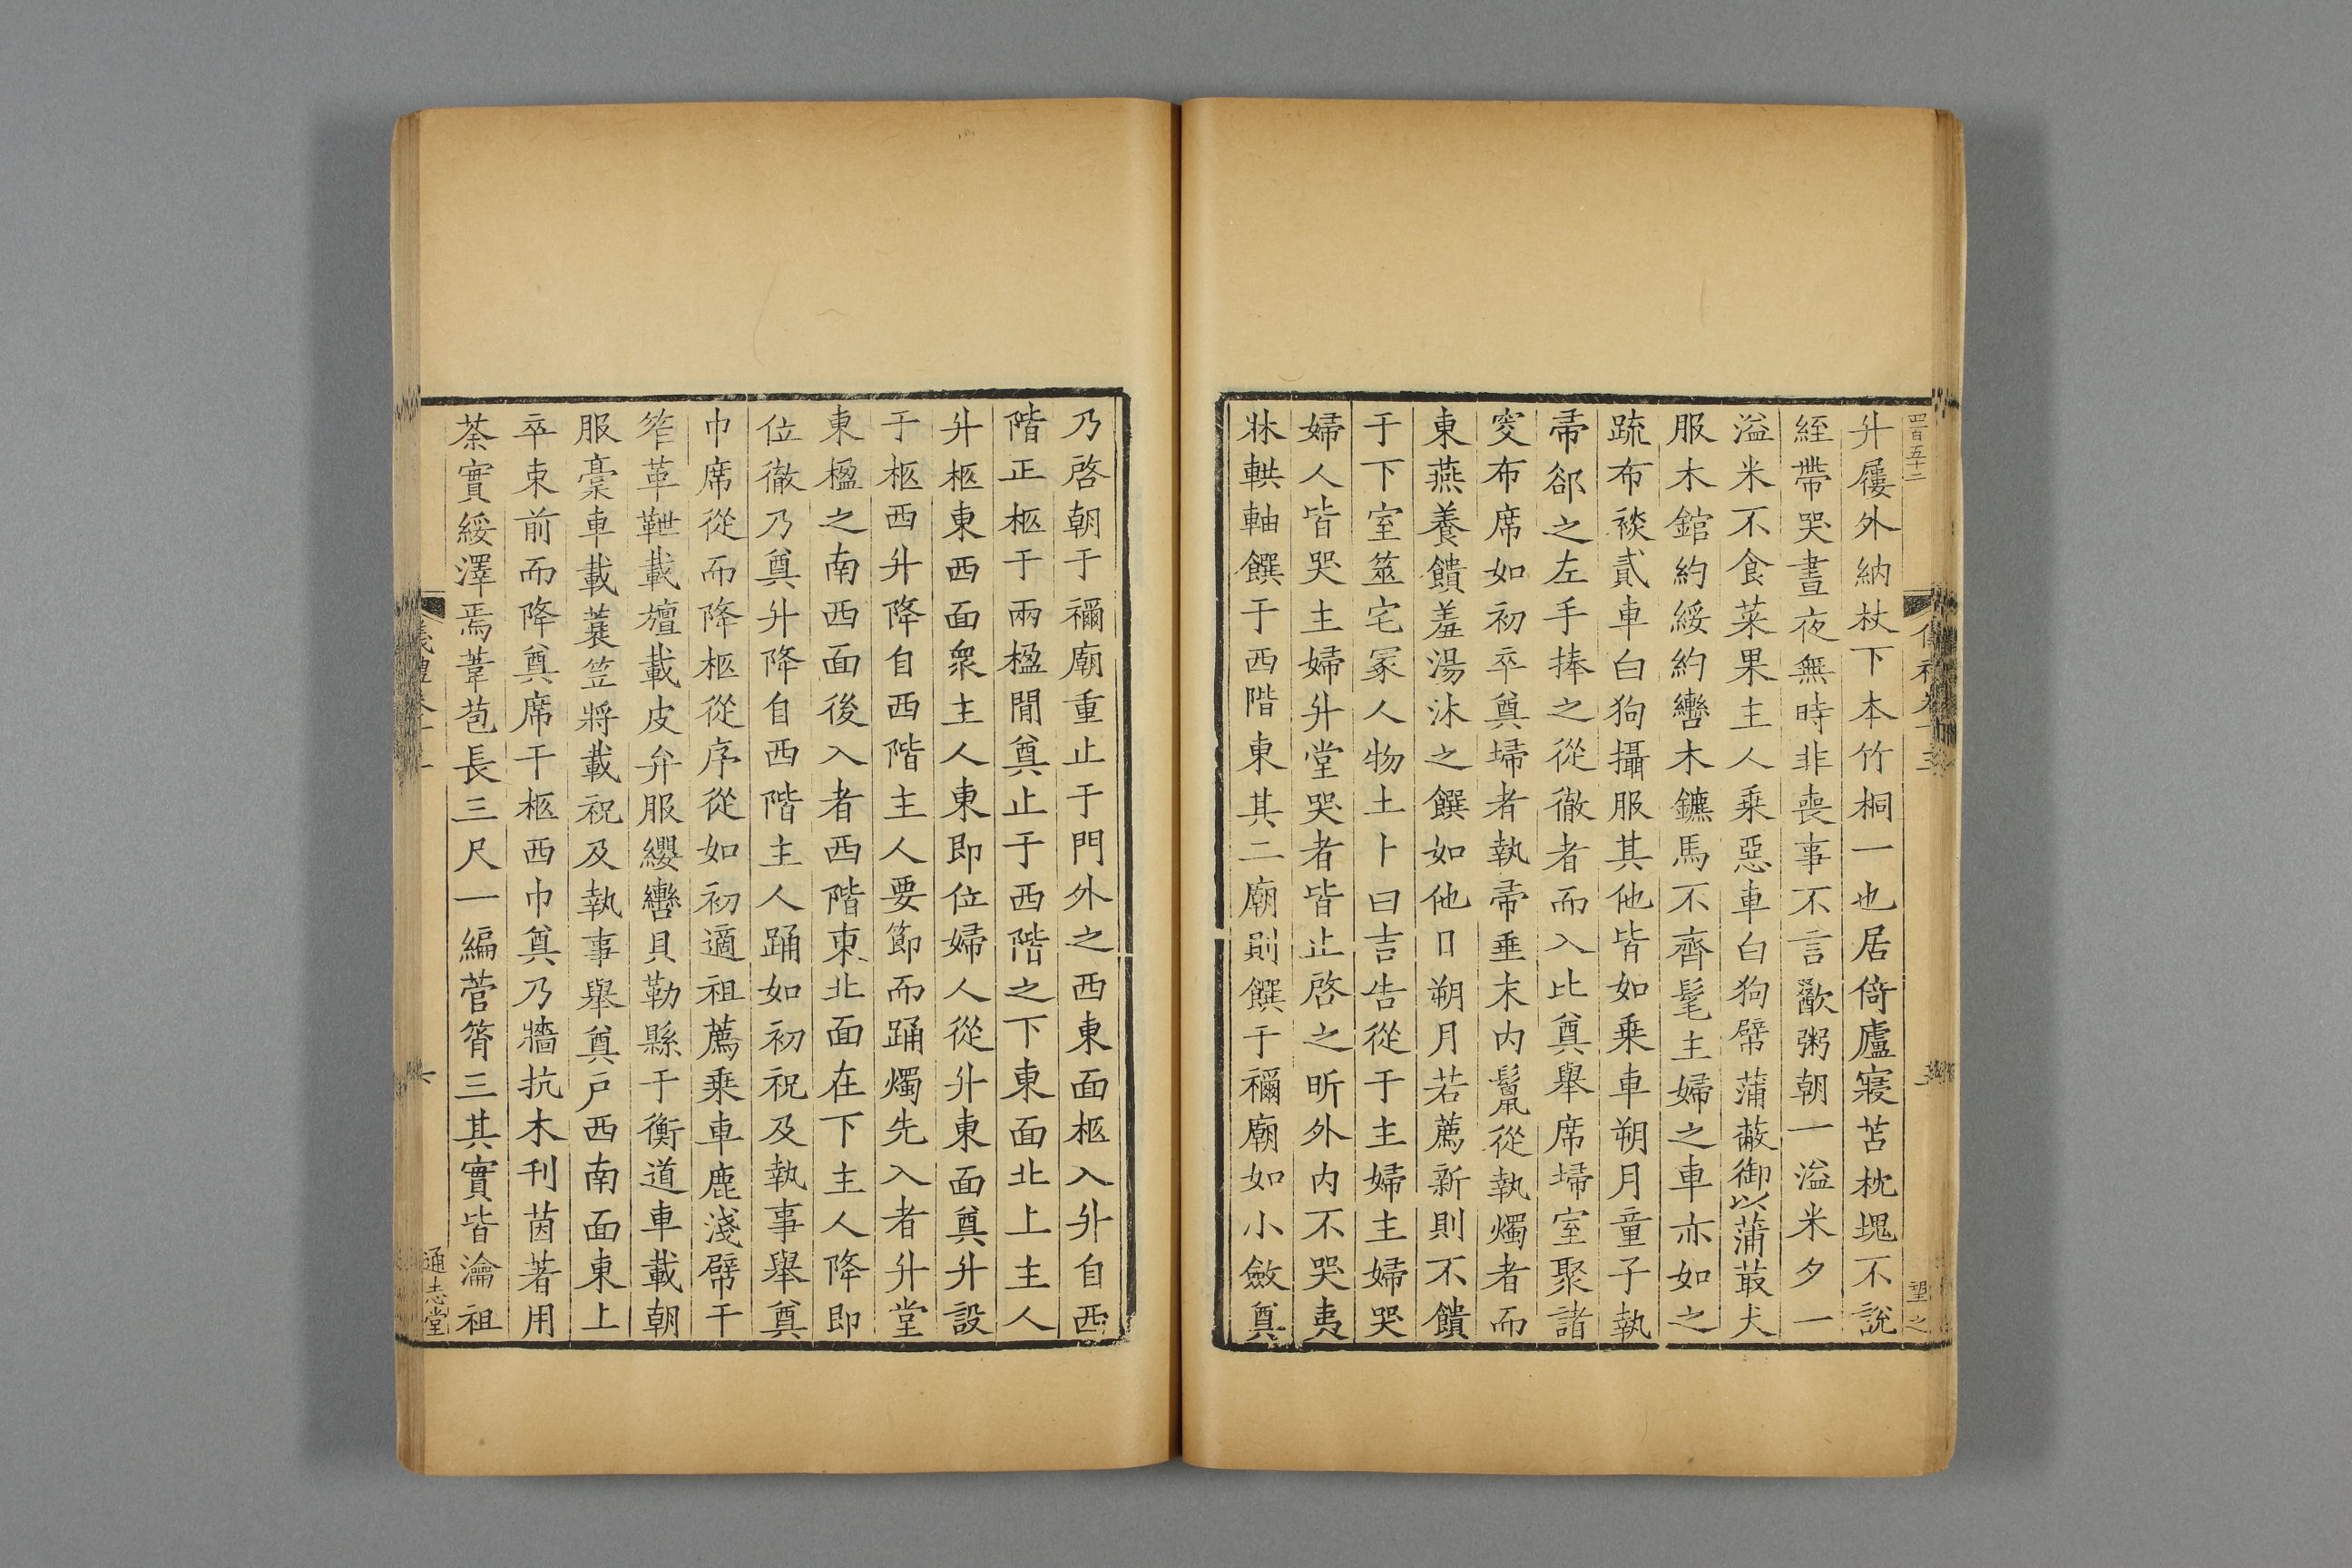 四百五十二
升屨外納杖下本竹桐一也居倚廬寢苫枕塊不說
絰帶哭晝夜無時非喪事不言歠粥朝一溢米夕一
溢米不食菜果主人乗惡車白狗幦蒲蔽御以蒲菆犬
服木錧約綏約轡木鑣馬不齊髦主婦之車亦如之
疏布裧貳車白狗攝服其他皆如乗車朔月童子執
帚郤之左手捧之從徹者而入比奠舉席埽室聚諸
窔布席如初卒奠埽者執帚垂末內鬣從執燭者而
東燕養饋羞湯沐之饌如他日朔月若薦新則不饋
于下室筮宅冢人物土卜曰吉告從于主婦主婦哭
婦人皆哭主婦升堂哭者皆止啓之昕外內不哭夷
牀輁軸饌于西階東其二廟則饌于禰廟如小斂奠
望之
乃啓朝于禰廟重止于門外之西東面柩入升自西
階正柩于兩楹閒奠止于西階之下東面北上主人
升柩東西面衆主人東即位婦人從升東面奠升設
于柩西升降自西階主人要節而踊燭先入者升堂
東楹之南西面後入者西階東北面在下主人降即
位徹乃奠升降自西階主人踊如初祝及執事舉奠
巾席從而降柩從序從如初適祖薦乗車鹿淺幦干
笮革靾載旜載皮弁服纓轡貝勒縣于衡道車載朝
服稾車載蓑笠將載祝及執事舉奠戶西南面東上
卒束前而降奠席于柩西巾奠乃牆抗木刊茵著用
荼實綏澤焉葦苞長三尺一編菅筲三其實皆瀹祖
通志堂